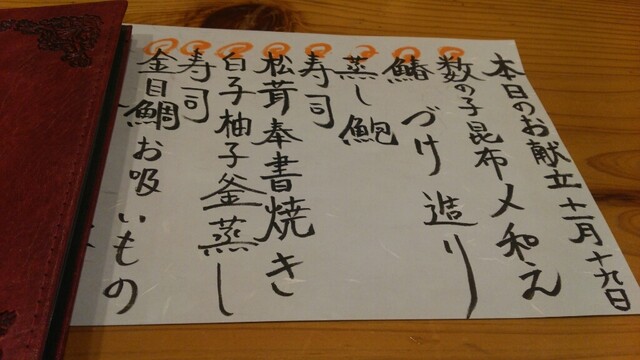 本日のお献立 十一月十九日
数の子昆布〆和え
鰆づけ造り
蒸し鮑
寿司
松茸奉書焼き
白子柚子釜蒸し
寿司
金目鯛お吸いもの